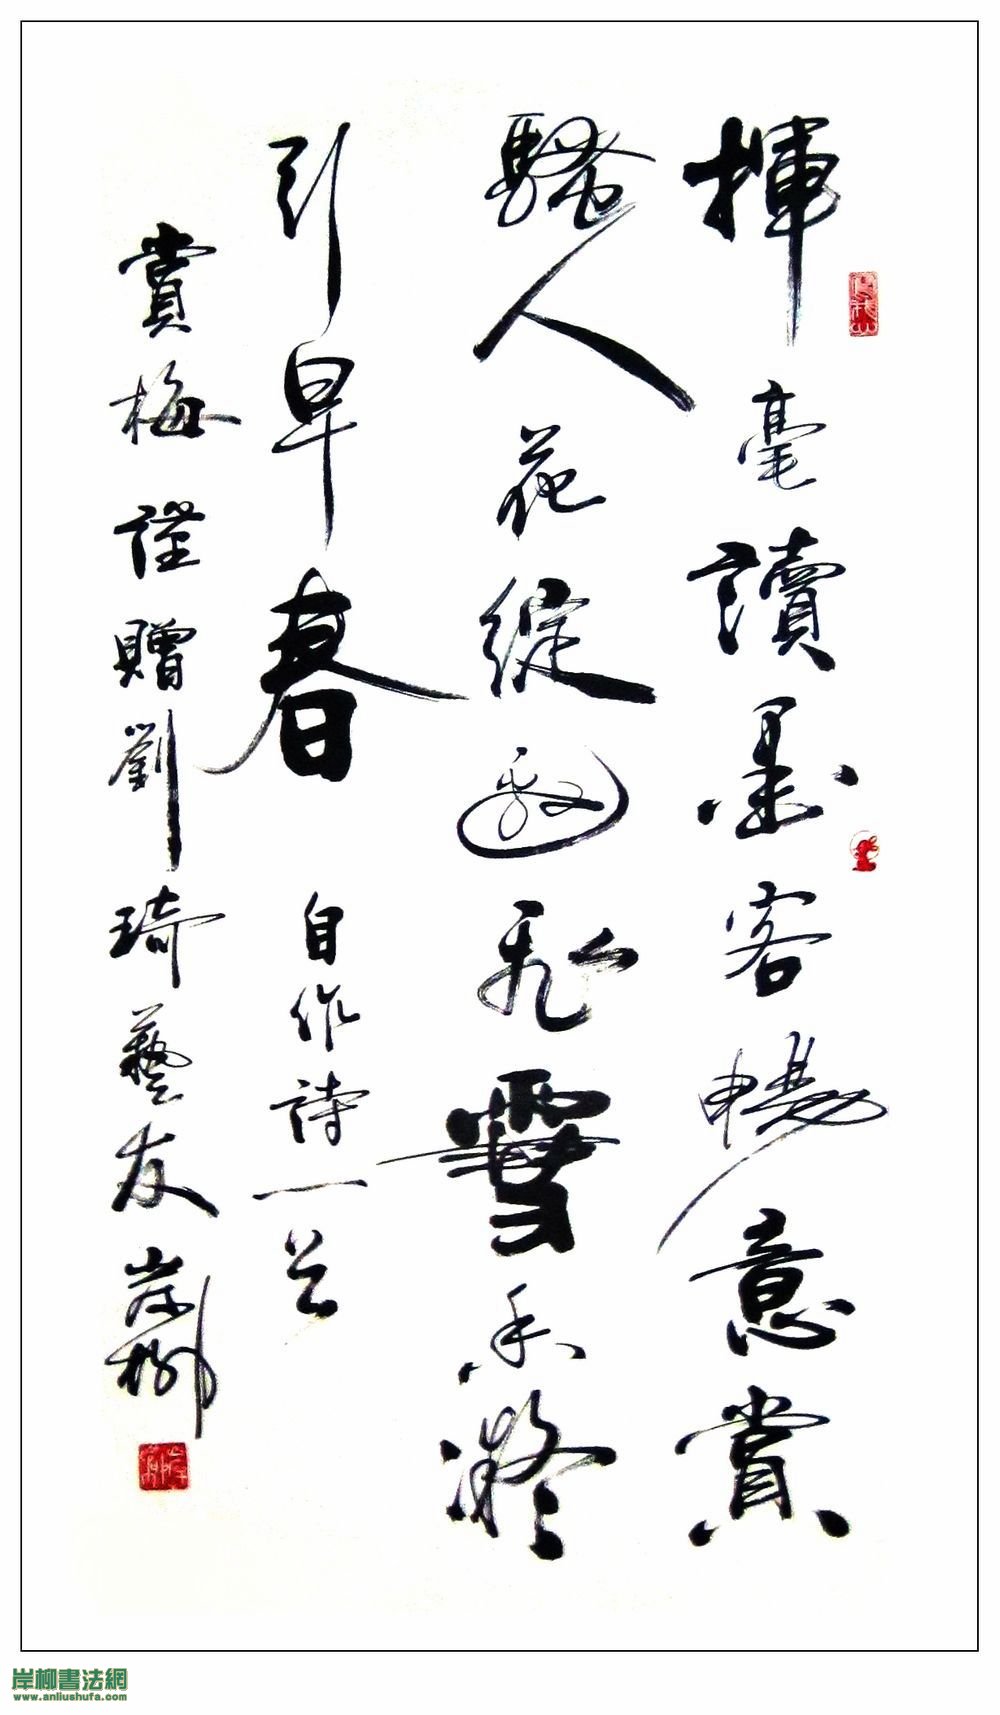 揮毫讀墨客暢意賞
騷人花綻邀飛雪香凝
引早春 自作詩一首
賞梅 謹贈劉琦藝友 岸柳
岸柳
岸柳書法網
www.anliushufa.com